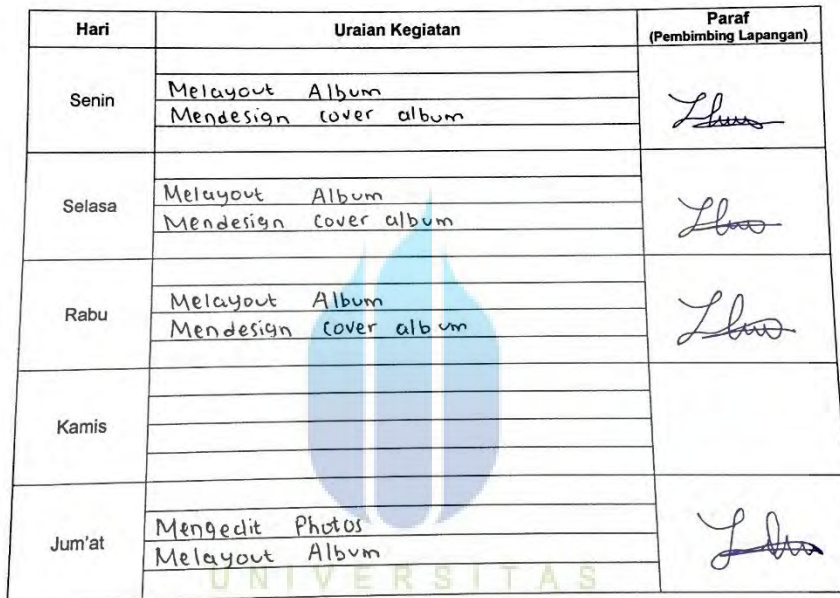 Hari Uraian Kegiatan Paraf
(Pembimbing Lapangan)
Senin
Melayout Album
Mendesign cover album
Selasa
Melayout Album
Mendesign cover album
Rabu
Melayout Album
Mendesign cover album
Kamis
Jum'at
Mengedit Photos
Melayout Album
UNIVERSITAS